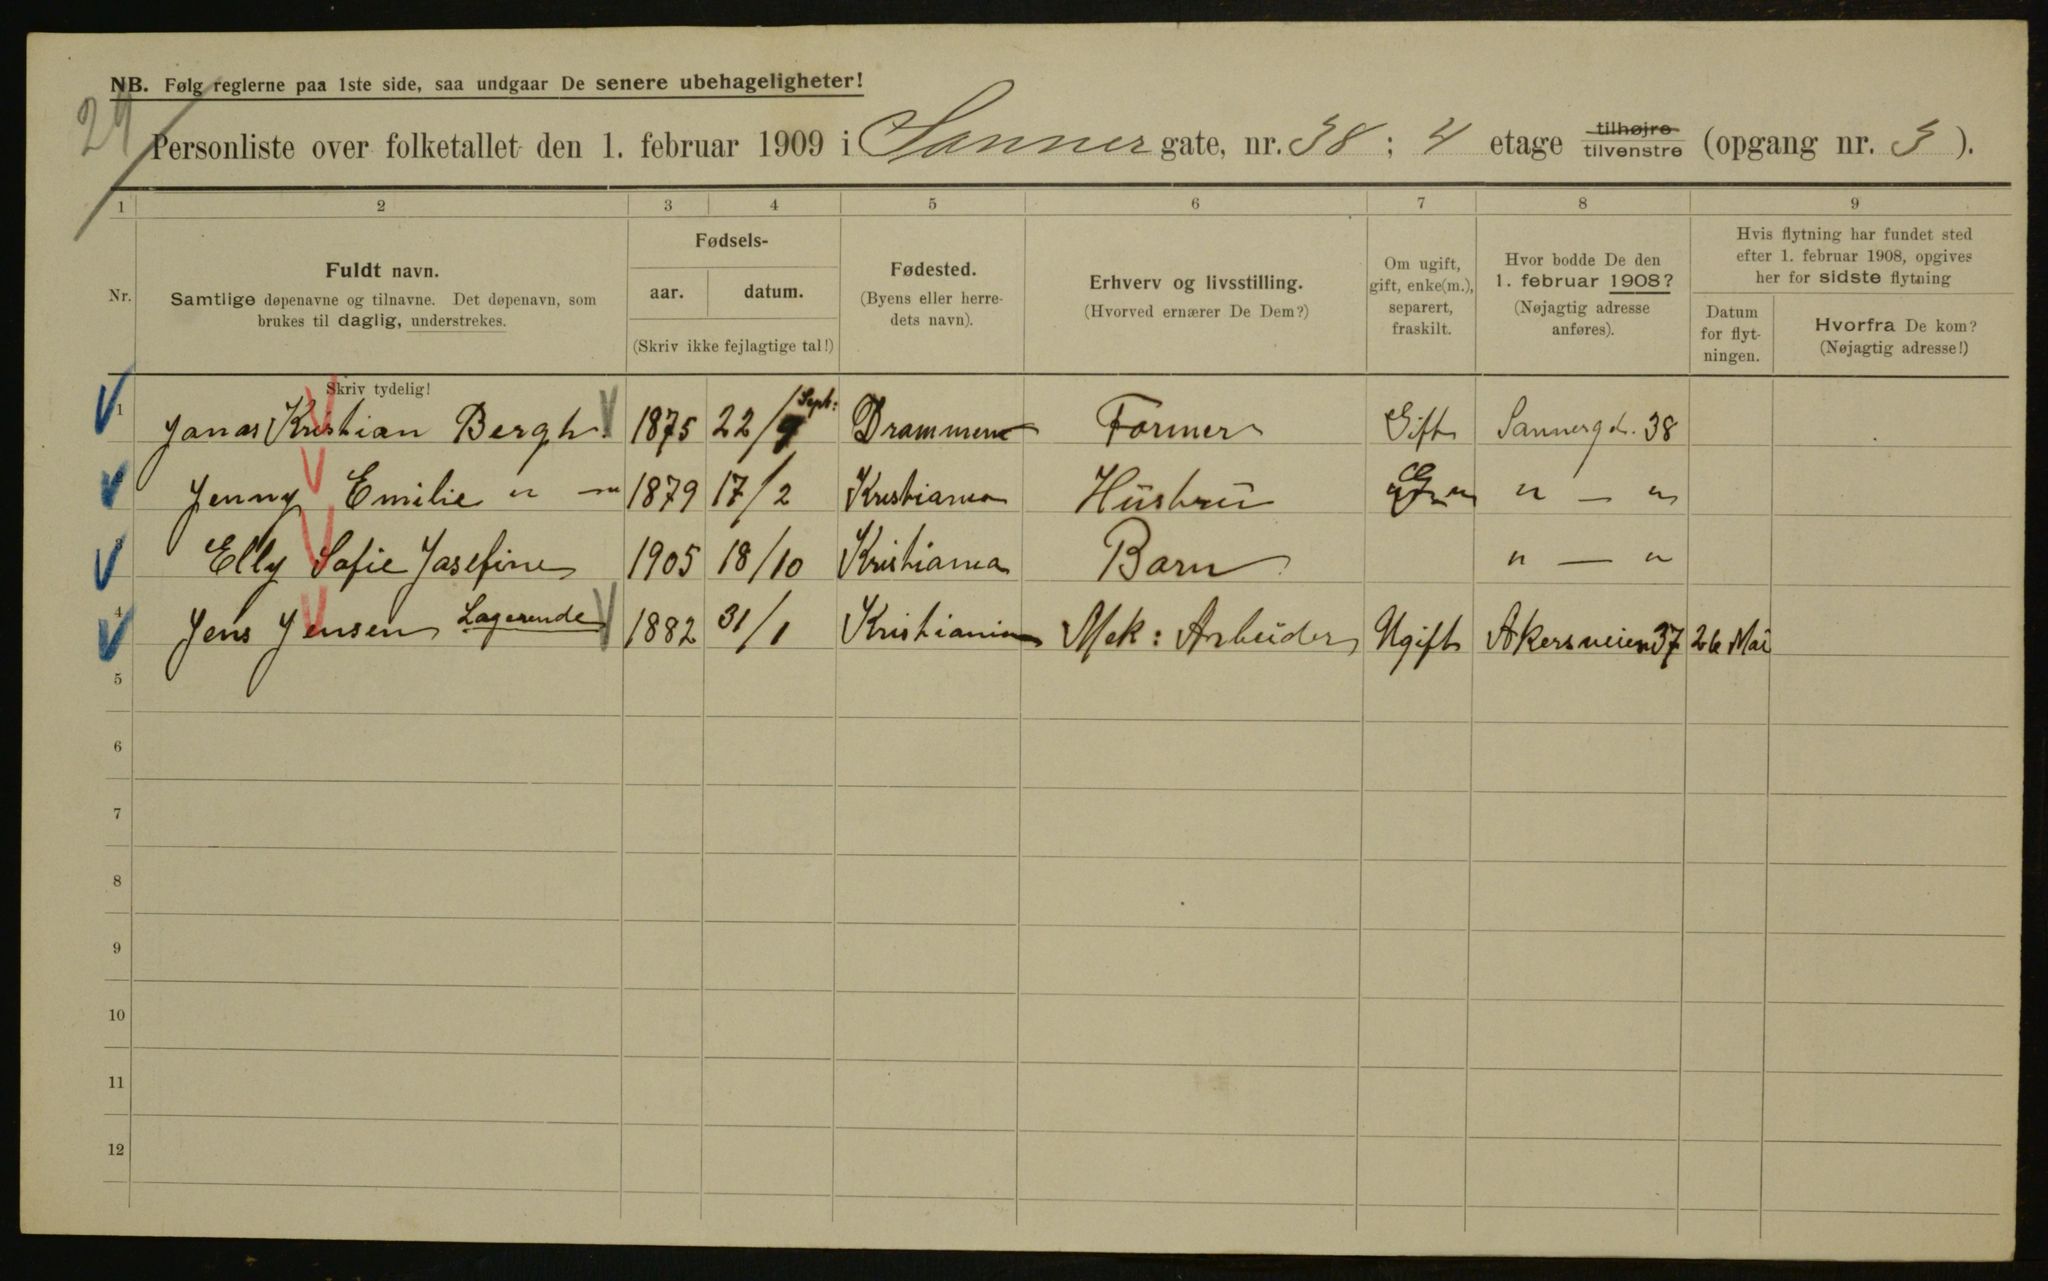 NB. Følg reglerne paa 1ste side, saa undgaar De senere ubehageligheter!
Personliste over folketallet den 1. februar 1909 i Sanner gate, nr. 38 ; 4 etage tilhøjre tilvenstre (opgang nr. 3 ).
1 2 3 4 5 6 7 8 9
Nr.
Fuldt navn.
Samtlige døpenavne og tilnavne. Det døpenavn, som
brukes til daglig, understrekes.
Fødsels-
aar. datum.
(Skriv ikke fejlagtige tal!)
Fødested.
(Byens eller herre-
dets navn).
Erhverv og livsstilling.
(Hvorved ernærer De Dem?)
Om ugift,
gift, enke(m.),
separert,
fraskilt.
Hvor bodde De den
1. februar 1908?
(Nøjagtig adresse
anføres).
Hvis flytning har fundet sted
efter 1. februar 1908, opgives
her for sidste flytning
Datum
for flyt-
ningen.
Hvorfra De kom?
(Nøjagtig adresse!)
Skriv tydelig!
1 Jonas Kristian Bergh. 1875 22/9 Sept: Drammen Former Gift Sannergd. 38
2 Jenny Emilie " — " 1879 17/2 Kristiania Hüstrü " — "
3 Elly Sofie Josefine 1905 18/10 Kristiania Barn " — "
4 Jens Jensen Logerende 1882 31/1 Kristiania Mek: Arbeider Ugift Akersveien 37 26 Mai
5
6
7
8
9
10
11
12